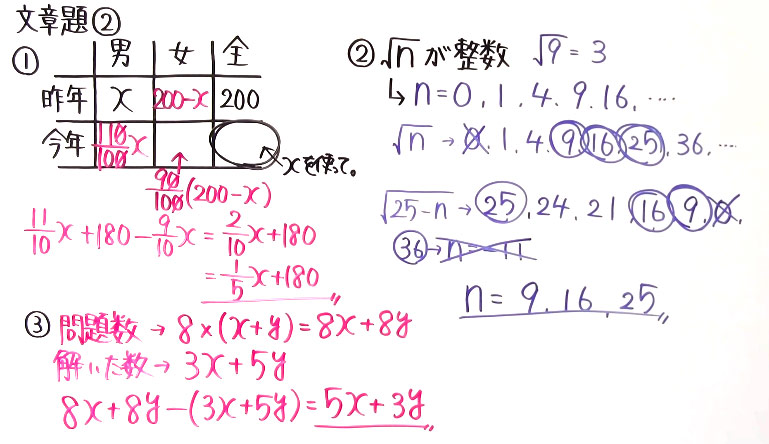 文章題②
①
男 女 全
昨年 x 200-x 200
今年 110/100 x
xを使って。
90/100(200-x)
11/10 x+180-9/10 x=2/10 x+180
=1/5 x+180
② √nが整数 √9=3
↳n=0.1.4.9.16.‥‥
√n→0.1.4.9.16.25.36.‥‥
√25-n→25.24.21.16.9.0.
36→n=-11
n=9.16.25
③問題数→8×(x+y)=8x+8y
解いた数→3x+5y
8x+8y-(3x+5y)=5x+3y